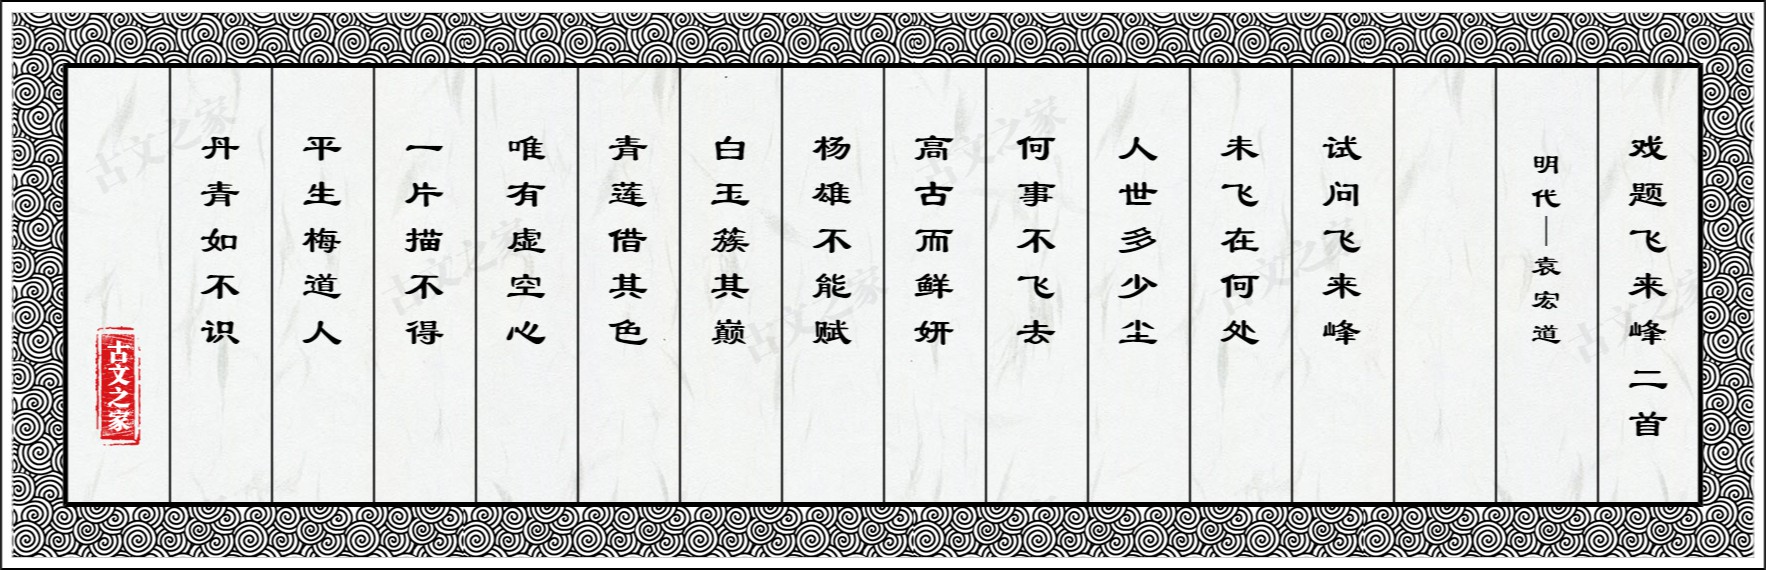 戏题飞来峰二首
明代—袁宏道
试问飞来峰
未飞在何处
人世多少尘
何事不飞去
高古而鲜妍
杨雄不能赋
白玉簇其巅
青莲借其色
唯有虚空心
一片描不得
平生梅道人
丹青如不识
古文之家